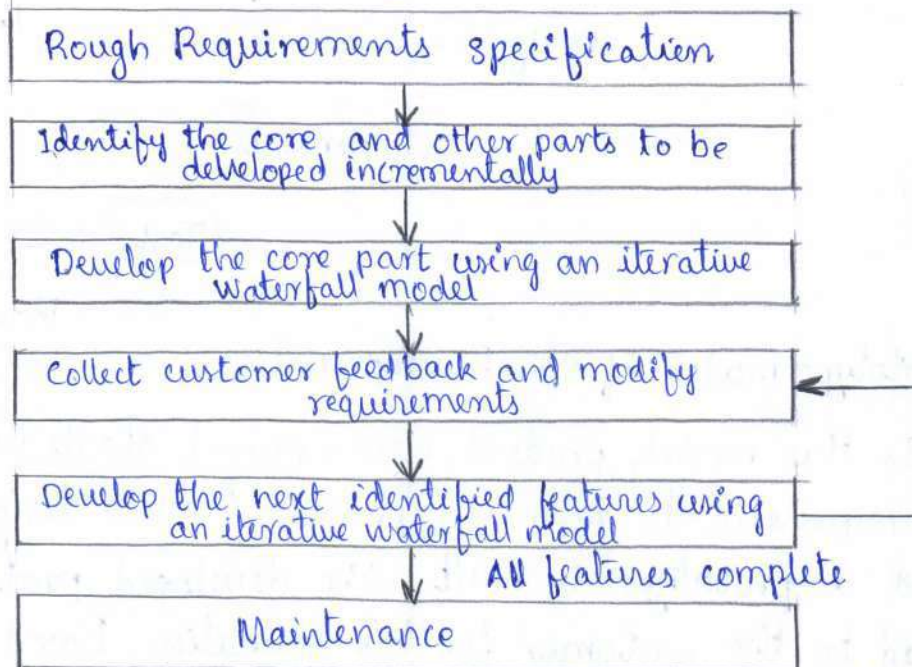 Rough Requirements specification
Identify the core and other parts to be
developed incrementally
Develop the core part using an iterative
waterfall model
Collect customer feedback and modify
requirements
Develop the next identified features using
an iterative waterfall model
All features complete
Maintenance